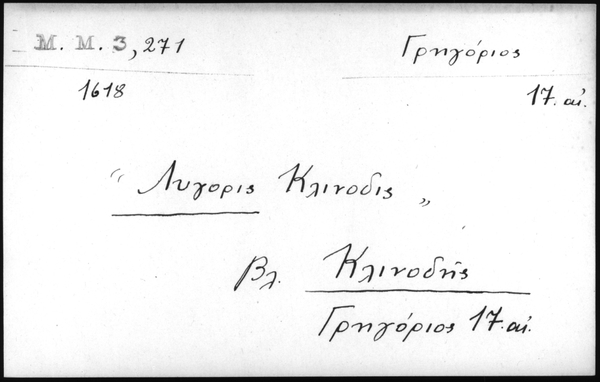 Μ. Μ. 3, 271
Γρηγόριος
1618
17. αἰ.
“ Λυγορις Κλινοδις „
Βλ. Κλινοδής
Γρηγόριος 17. αἰ.